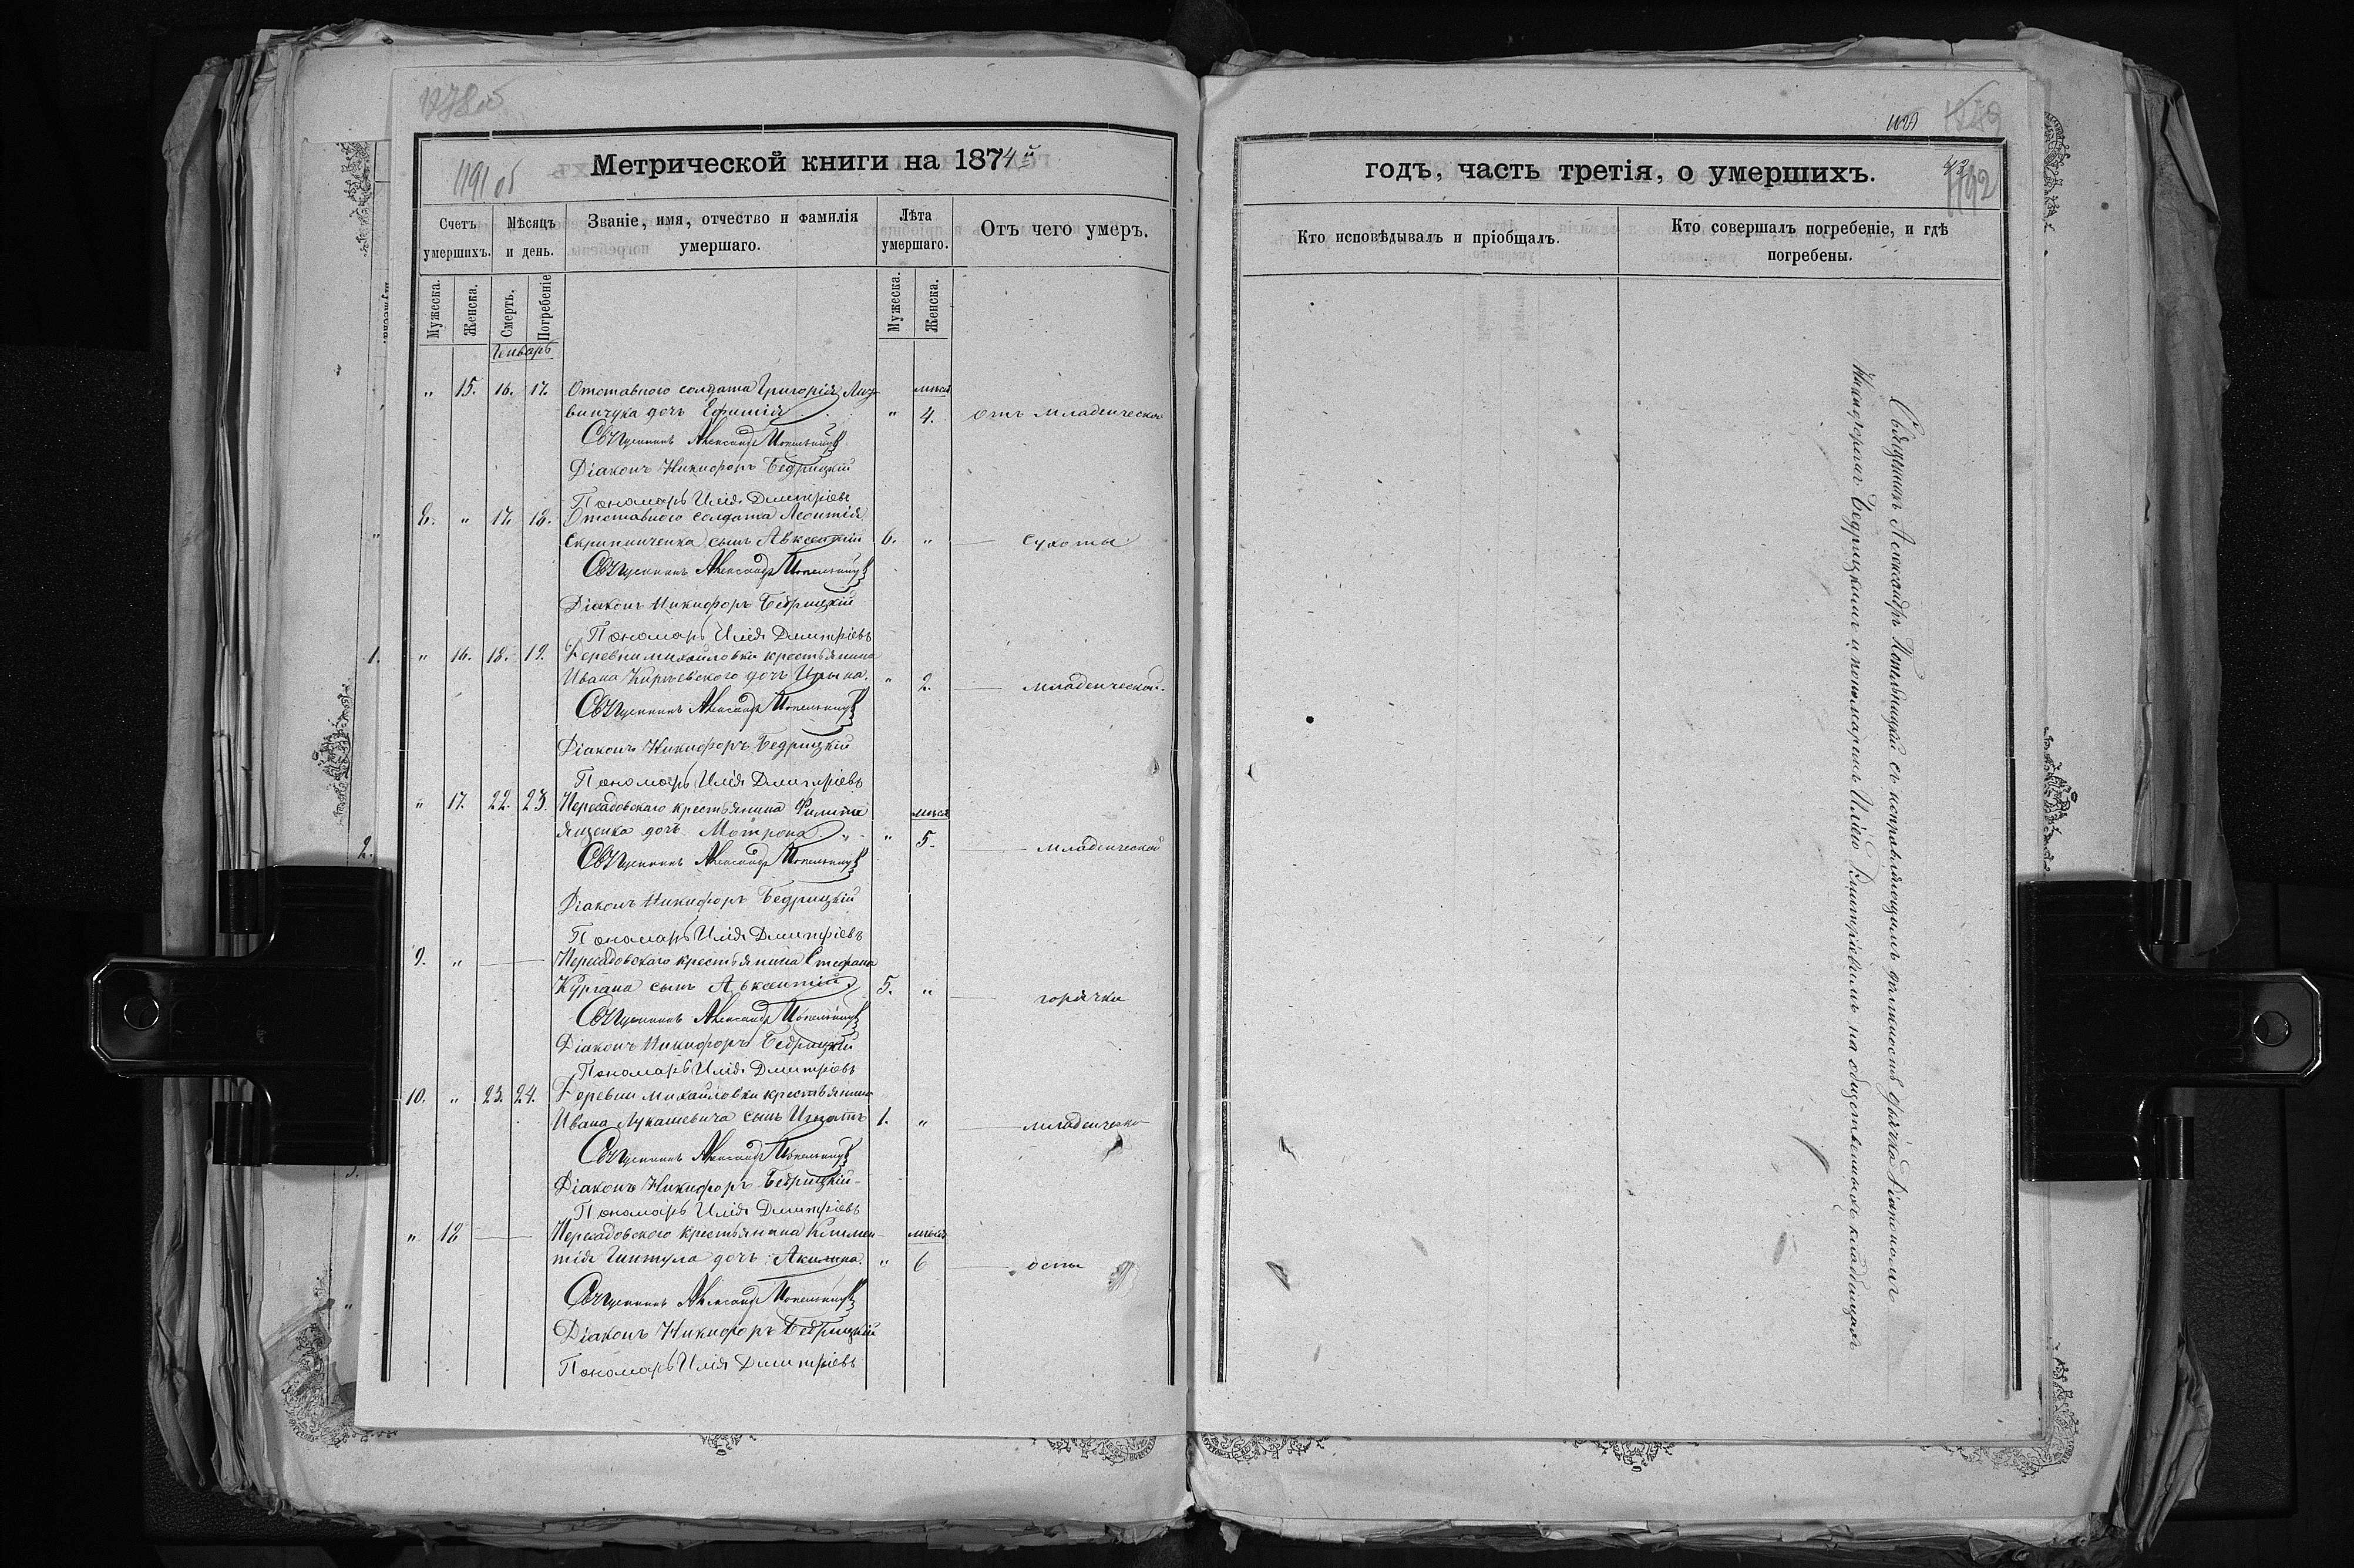 1191 об
Метрической книги на 1874й
Счетъ умершихъ.
Мѣсяцъ и день.
Званіе, имя, отчество и фамилія умершаго.
Лѣта умершаго.
Отъ чего умеръ.
Мужеска.
Женска.
Смерть.
Погребеніе
Мужеска.
Женска.
Генварь
" 15. 16. 17. Отставного солдата Григорія
дочь Ефимія " 4. отъ младенческой
Священникъ Александръ Топельницкій
Діаконъ Никифоръ Бедрицкій
Пономарь Илія Дмитріевъ
8. " 17. 18. Отставного солдата Леонтія
Скрипниченка сынъ Авксентій 6. " — сухоты
Священникъ Александръ Топельницкій
Діаконъ Никифоръ Бедрицкій
Пономарь Илія Дмитріевъ
" 16. 18. 19. Деревни Михайловки крестьянина
Ивана Киріевского дочь Ирина. " 2. — младенческой.
Священникъ Александръ Топельницкій
Діаконъ Никифоръ Бедрицкій
Пономарь Илія Дмитріевъ
" 17. 22. 23. Пересадовскаго крестьянина Филипа
Яценка дочь Мотрона " 5. — младенческой
Священникъ Александръ Топельницкій
Діаконъ Никифоръ Бедрицкій
Пономарь Илія Дмитріевъ
9. " — Пересадовскаго крестьянина Стефана
Кургана сынъ Авксентій 5. " — горячки
Священникъ Александръ Топельницкій
Діаконъ Никифоръ Бедрицкій
Пономарь Илія Дмитріевъ
10. " 23. 24. Деревни Михайловки крестьянина
Ивана Лукашевича сынъ 1. " — младенческой
Священникъ Александръ Топельницкій
Діаконъ Никифоръ Бедрицкій
Пономарь Илія Дмитріевъ
" 18 — Пересадовского крестьянина Климен-
тія дочь Акилина. " 6 — оспы
Священникъ Александръ Топельницкій
Діаконъ Никифоръ Бедрицкій
Пономарь Илія Дмитріевъ
годъ, часть третія, о умершихъ.
1192
Кто исповѣдывалъ и пріобщалъ.
Кто совершалъ погребеніе, и гдѣ погребены.
Священникъ Александръ Топельницкій съ исправляющимъ должность дьячка Діакономъ
Никифоромъ Бедрицкимъ и пономаремъ Иліею Дмитріевымъ на общественныхъ кладбищахъ